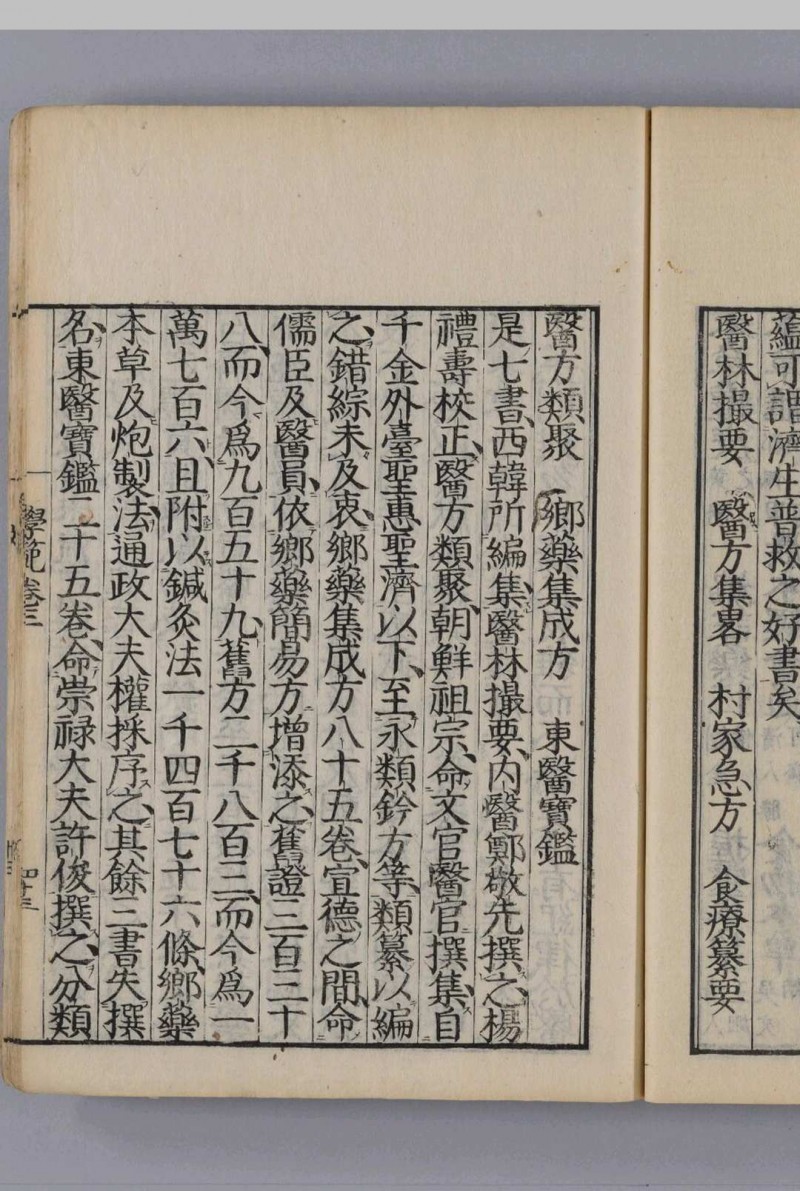 蘊可謂濟生普救之好書矣
醫林撮要　醫方集畧　村家急方　食療纂要
醫方類聚　鄉藥集成方　東醫寶鑑
是七書、西韓所編集、醫林撮要、內醫鄭敬先撰之、楊
禮壽校正、醫方類聚、朝鮮祖宗、命文官醫官撰集、自
千金外臺聖惠聖濟以下、至永類鈐方等、類纂以編
之、錯綜未及衷、鄉藥集成方八十五卷、宣德之間、命
儒臣及醫員、依鄉藥簡易方增添之、舊證三百三十
八、而今爲九百五十九、舊方二千八百三、而今爲一
萬七百六、且附以鍼灸法一千四百七十六條、鄉藥
本草及炮製法、通政大夫權採序之、其餘三書失撰
名、東醫寶鑑二十五卷、命崇禄大夫許俊撰之、分類
學範卷三